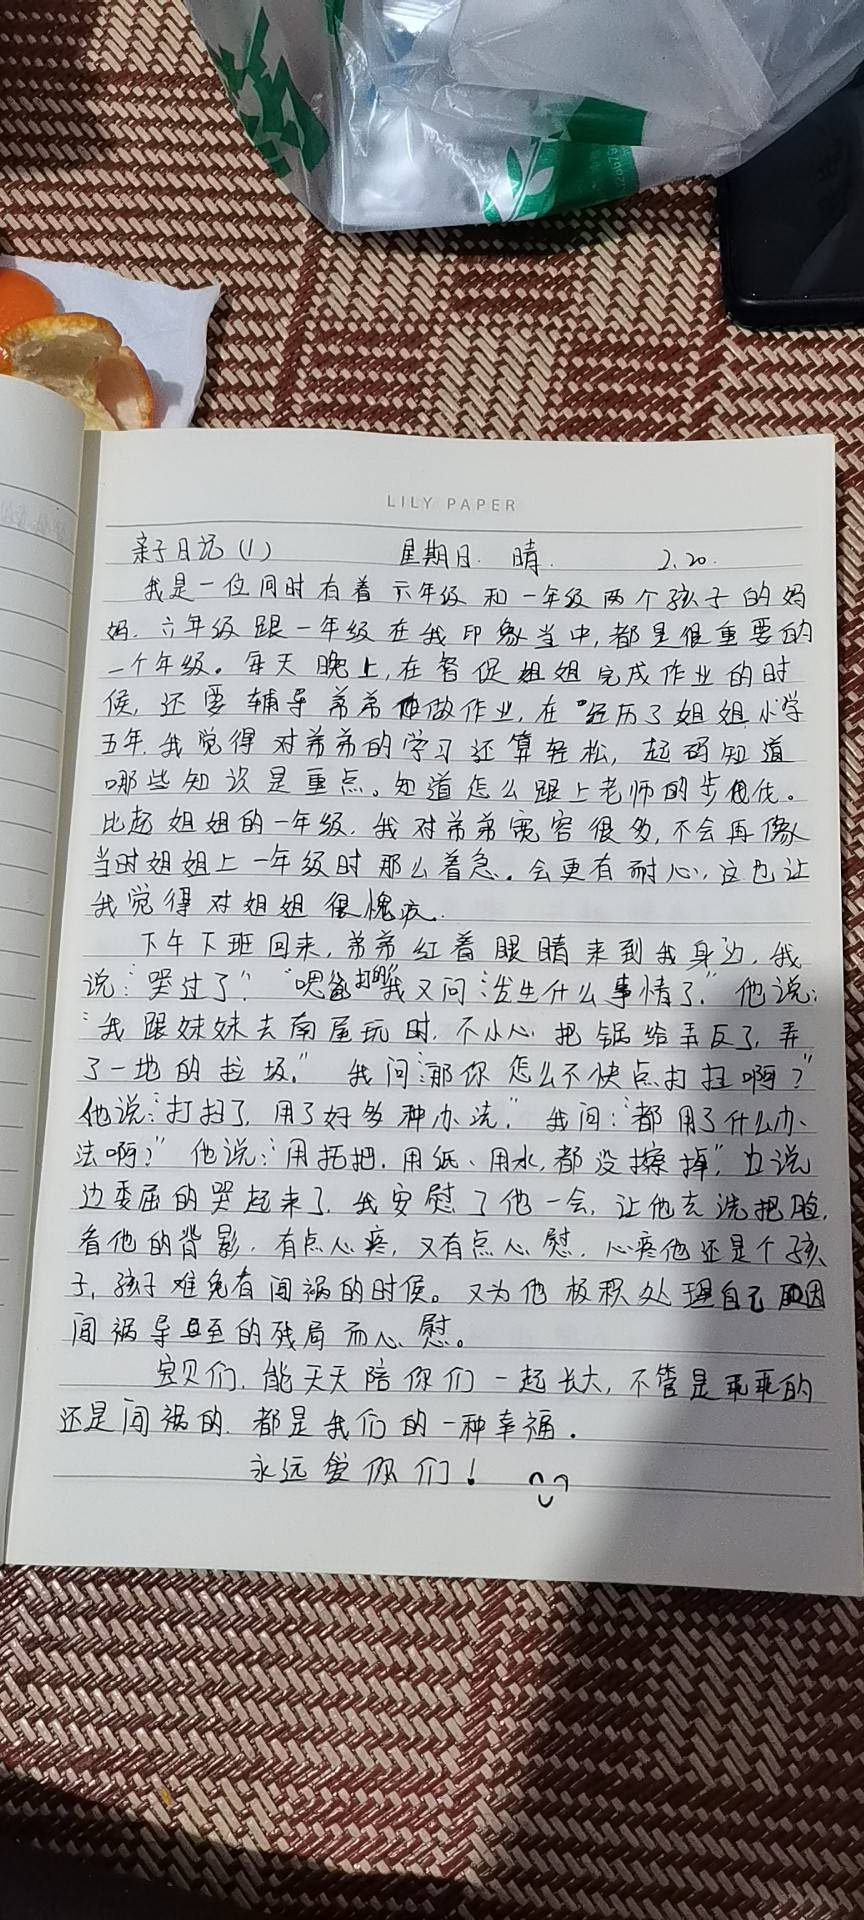 LILY PAPER
亲子日记(1) 星期日. 晴. 2.20.
我是一位同时有着六年级和一年级两个孩子的妈
妈. 六年级跟一年级在我印象当中,都是很重要的
一个年级。每天晚上,在督促姐姐完成作业的时
候,还要辅导弟弟做作业,在经历了姐姐小学
五年.我觉得对弟弟的学习还算轻松,起码知道
哪些知识是重点。知道怎么跟上老师的步伐。
比起姐姐的一年级.我对弟弟宽容很多,不会再像
当时姐姐上一年级时那么着急.会更有耐心,这也让
我觉得对姐姐很愧疚.
下午下班回来,弟弟红着眼睛来到我身边,我
说:"哭过了" "嗯爸打的"我又问:"发生什么事情了." 他说:
"我跟妹妹去南屋玩时.不小心把锅给弄反了,弄
了一地的垃圾." 我问:"那你怎么不快点打扫啊?"
他说:"打扫了,用了好多种办法." 我问:"都用了什么办
法啊?" 他说:"用拓把.用纸、用水,都没擦掉",边说
边委屈的哭起来了.我安慰了他一会,让他去洗把脸,
看他的背影.有点心疼,又有点心慰.心疼他还是个孩
子,孩子难免有闯祸的时候。又为他极积处理自己因
闯祸导至的残局而心慰。
宝贝们.能天天陪你们一起长大,不管是乖乖的
还是闯祸的.都是我们的一种幸福.
永远爱你们!